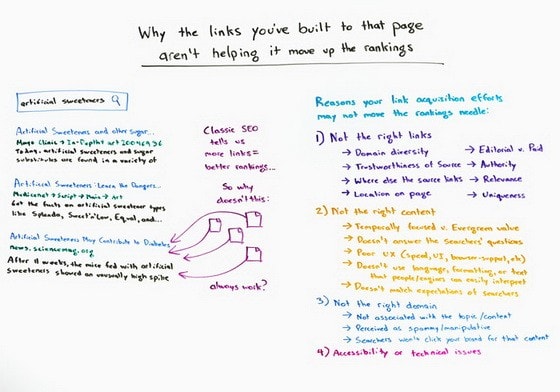 Why the links you've built to that page
aren't helping it move up the rankings
artificial sweeteners
Artificial Sweeteners and other sugar...
Mayo Clinic → In-Depth → art 20046936
Today, artificial sweeteners and sugar
substitutes are found in a variety of
Artificial Sweeteners: Learn the Dangers...
Medicinenet → Script → Main → Art
Get the facts on artificial sweetener types
like Splenda, Sweet'n'Low, Equal, and...
Artificial Sweeteners May Contribute to Diabetes
news.sciencemag.org
After 11 weeks, the mice fed with artificial
sweeteners showed an unusually high spike
Classic SEO
tells us
more links=
better rankings...
So why
doesn't this:
always work?
Reasons your link acquisition efforts
may not move the rankings needle:
1) Not the right links
→ Domain diversity
→ Trustworthiness of Source
→ Where else the source links
→ Location on page
→ Editorial v. Paid
→ Authority
→ Relevance
→ Uniqueness
2) Not the right content
→ Temporally focused v. Evergreen value
→ Doesn't answer the searchers' questions
→ Poor UX (speed, UI, browser-support, etc)
→ Doesn't use language, formatting, or text
that people/engines can easily interpret
→ Doesn't match expectations of searchers
3) Not the right domain
→ Not associated with the topic/content
→ Perceived as spammy/manipulative
→ Searchers won't click your brand for that content
4) Accessibility or technical issues